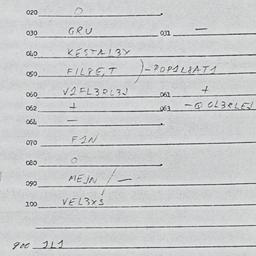 020 O
030 GRU 031 —
040 KESTAL3Y
050 FIL8E,T )-POP1L8AT1
060 V1FL3RL3J 061 +
062 + 063 -G OL3RLEJ
064 —
070 F1N
080 O
090 MEJN /—
100 VEL3XS
900 1L1